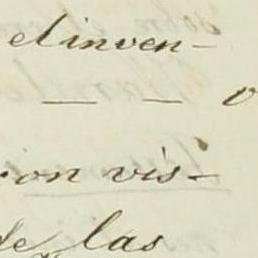 el inven-
— — v
ion vis-
de las